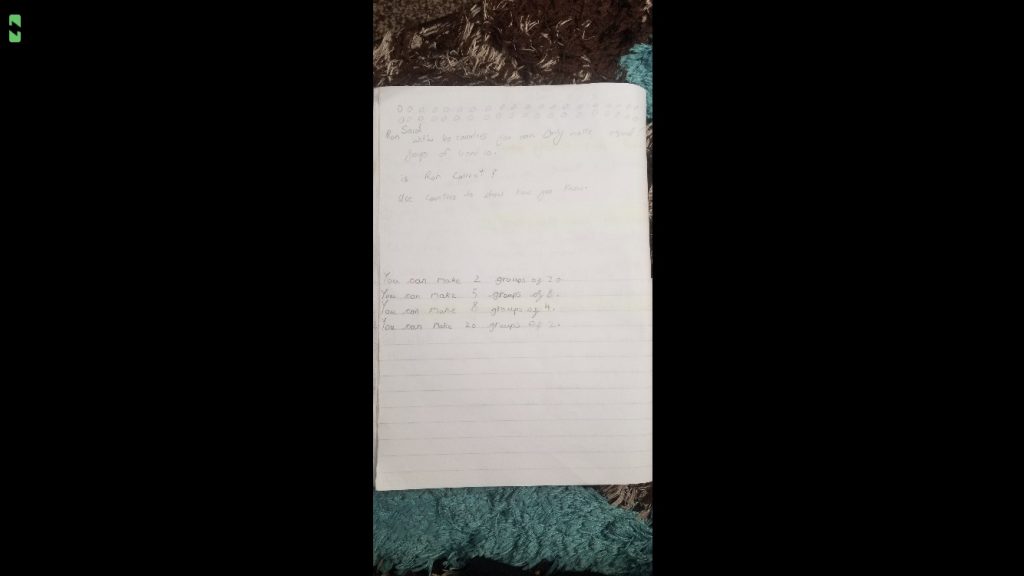 Ron Said with 40 counters you can only make equal
groups of
is Ron Correct ?
Use counters to show how you know.
You can make 2 groups of 20
You can make 5 groups of 8.
You can make 8 groups of 4.
You can make 20 groups of 2.